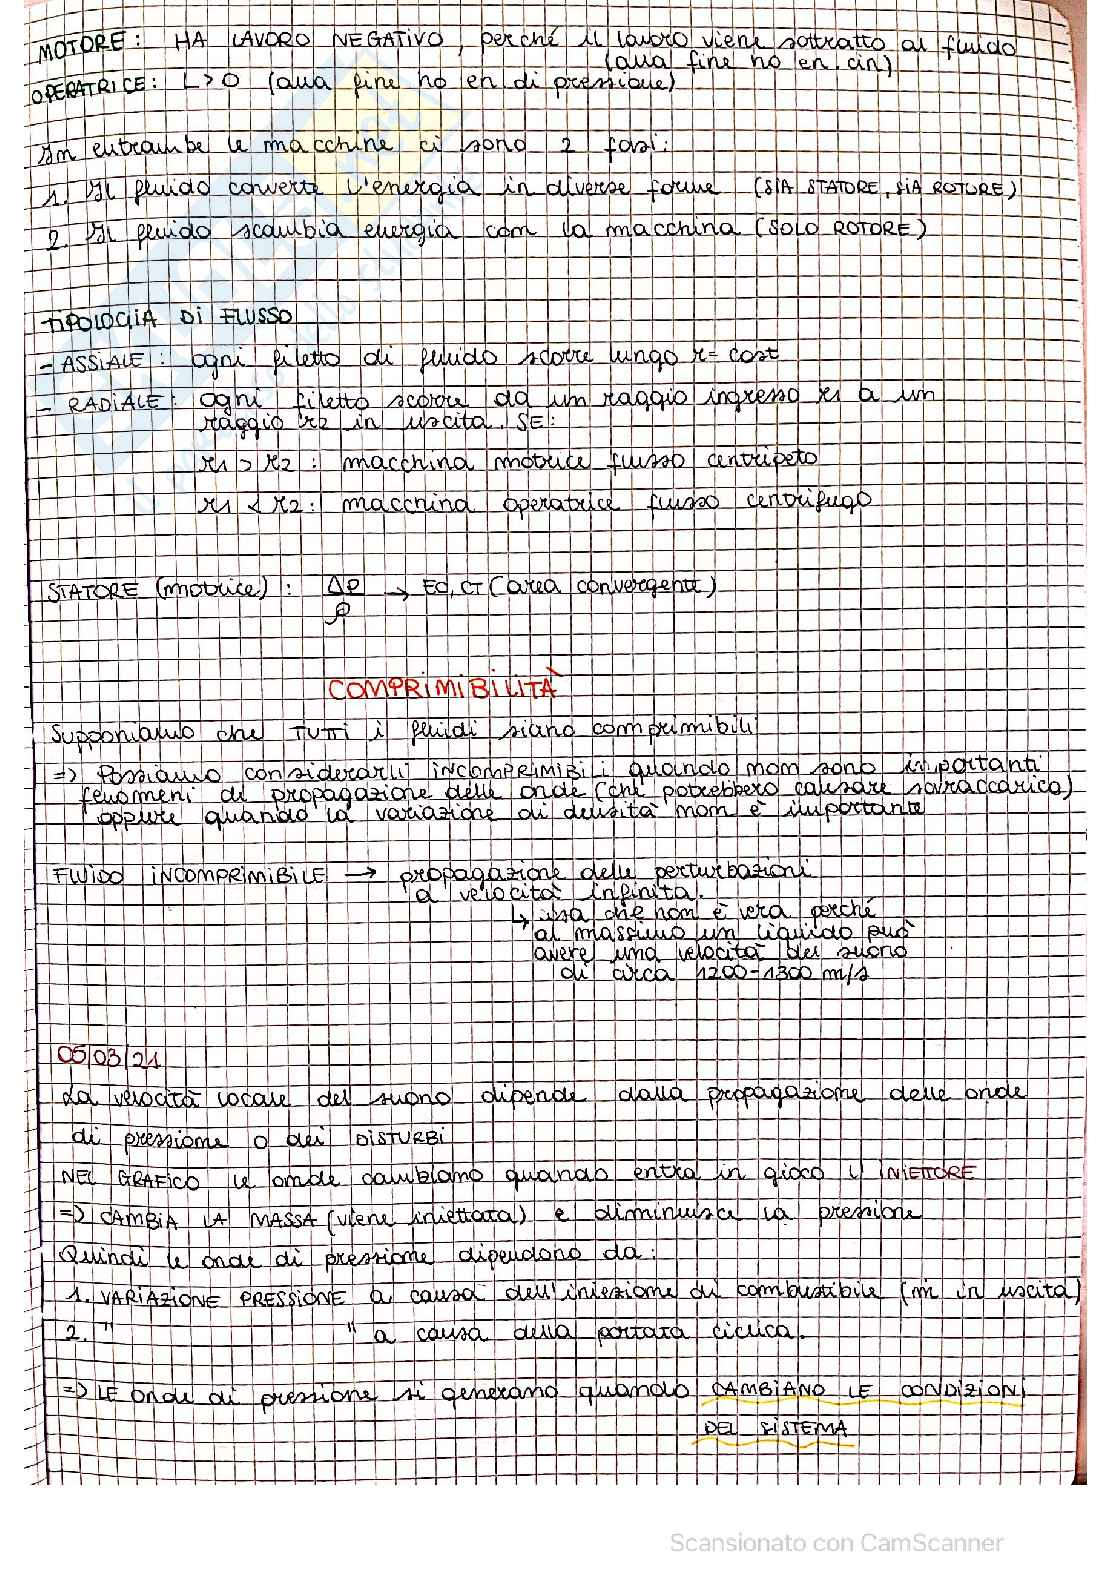 MOTORE: HA LAVORO NEGATIVO, perché il lavoro viene sottratto al fluido
(alla fine ho en. cin)
OPERATRICE: L>0 (alla fine ho en. di pressione)
In entrambe le macchine ci sono 2 fasi:
1. Il fluido converte l'energia in diverse forme (SIA STATORE, SIA ROTORE)
2. Il fluido scambia energia con la macchina (SOLO ROTORE)
TIPOLOGIA DI FLUSSO
- ASSIALE: ogni filetto di fluido scorre lungo r= cost
- RADIALE: ogni filetto scorre da un raggio ingresso r1 a un
raggio r2 in uscita. SE:
r1 > r2: macchina motrice flusso centripeto
r1 < r2: macchina operatrice flusso centrifugo
STATORE (motrice): Δp/ρ → EC,CT (area convergente)
COMPRIMIBILITÀ
Supponiamo che TUTTI i fluidi siano comprimibili
=> Possiamo considerarli INCOMPRIMIBILI quando non sono importanti
fenomeni di propagazione delle onde (che potrebbero causare sovraccarico)
oppure quando la variazione di densità non è importante
FLUIDO INCOMPRIMIBILE → propagazione delle perturbazioni
a velocità infinita.
↳ cosa che non è vera perché
al massimo un liquido può
avere una velocità del suono
di circa 1200-1300 m/s
05/03/21
La velocità locale del suono dipende dalla propagazione delle onde
di pressione o dei DISTURBI
NEL GRAFICO le onde cambiano quando entra in gioco l'INIETTORE
=> CAMBIA LA MASSA (viene iniettata) e diminuisce la pressione
Quindi le onde di pressione dipendono da:
1. VARIAZIONE PRESSIONE a causa dell'iniezione di combustibile (m in uscita)
2. " " a causa della portata ciclica.
=> LE onde di pressione si generano quando CAMBIANO LE CONDIZIONI
DEL SISTEMA
Scansionato con CamScanner